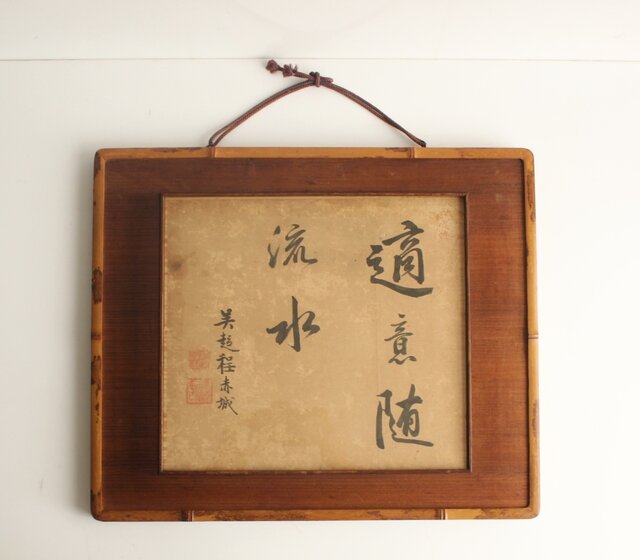 適意随
流水
吳趨程赤城